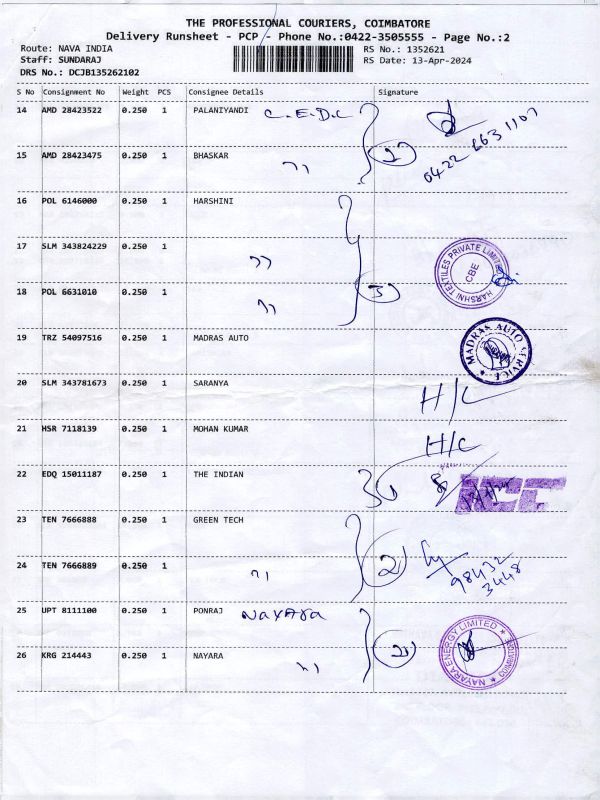 THE PROFESSIONAL COURIERS, COIMBATORE
Delivery Runsheet - PCP - Phone No.:0422-3505555 - Page No.:2
Route: NAVA INDIA RS No.: 1352621
Staff: SUNDARAJ RS Date: 13-Apr-2024
DRS No.: DCJB135262102
S No Consignment No Weight PCS Consignee Details Signature
14 AMD 28423522 0.250 1 PALANIYANDI C.E.D.C
15 AMD 28423475 0.250 1 BHASKAR " 2
0422 663 1107
16 POL 6146000 0.250 1 HARSHINI
17 SLM 343824229 0.250 1 "
HARSHNI TEXTILES PRIVATE LIMITED CBE
18 POL 6631010 0.250 1 " 3
19 TRZ 54097516 0.250 1 MADRAS AUTO MADRAS AUTO SERVICE
20 SLM 343781673 0.250 1 SARANYA H/C
21 HSR 7118139 0.250 1 MOHAN KUMAR H/C
22 EDQ 15011187 0.250 1 THE INDIAN
23 TEN 7666888 0.250 1 GREEN TECH
24 TEN 7666889 0.250 1 " 2 98432 3448
25 UPT 8111100 0.250 1 PONRAJ NAYARA
26 KRG 214443 0.250 1 NAYARA " 2
NAYARA ENERGY LIMITED COIMBATORE